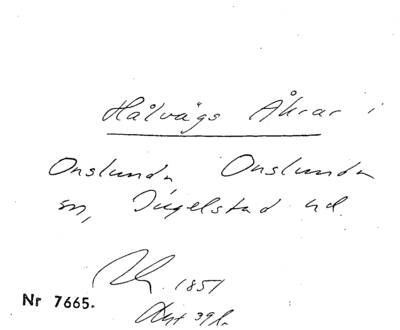 Hålvägs Åkrar i
Onslunda, Onslunda
sn, Ingelstad hd.
1851
Nr 7665.